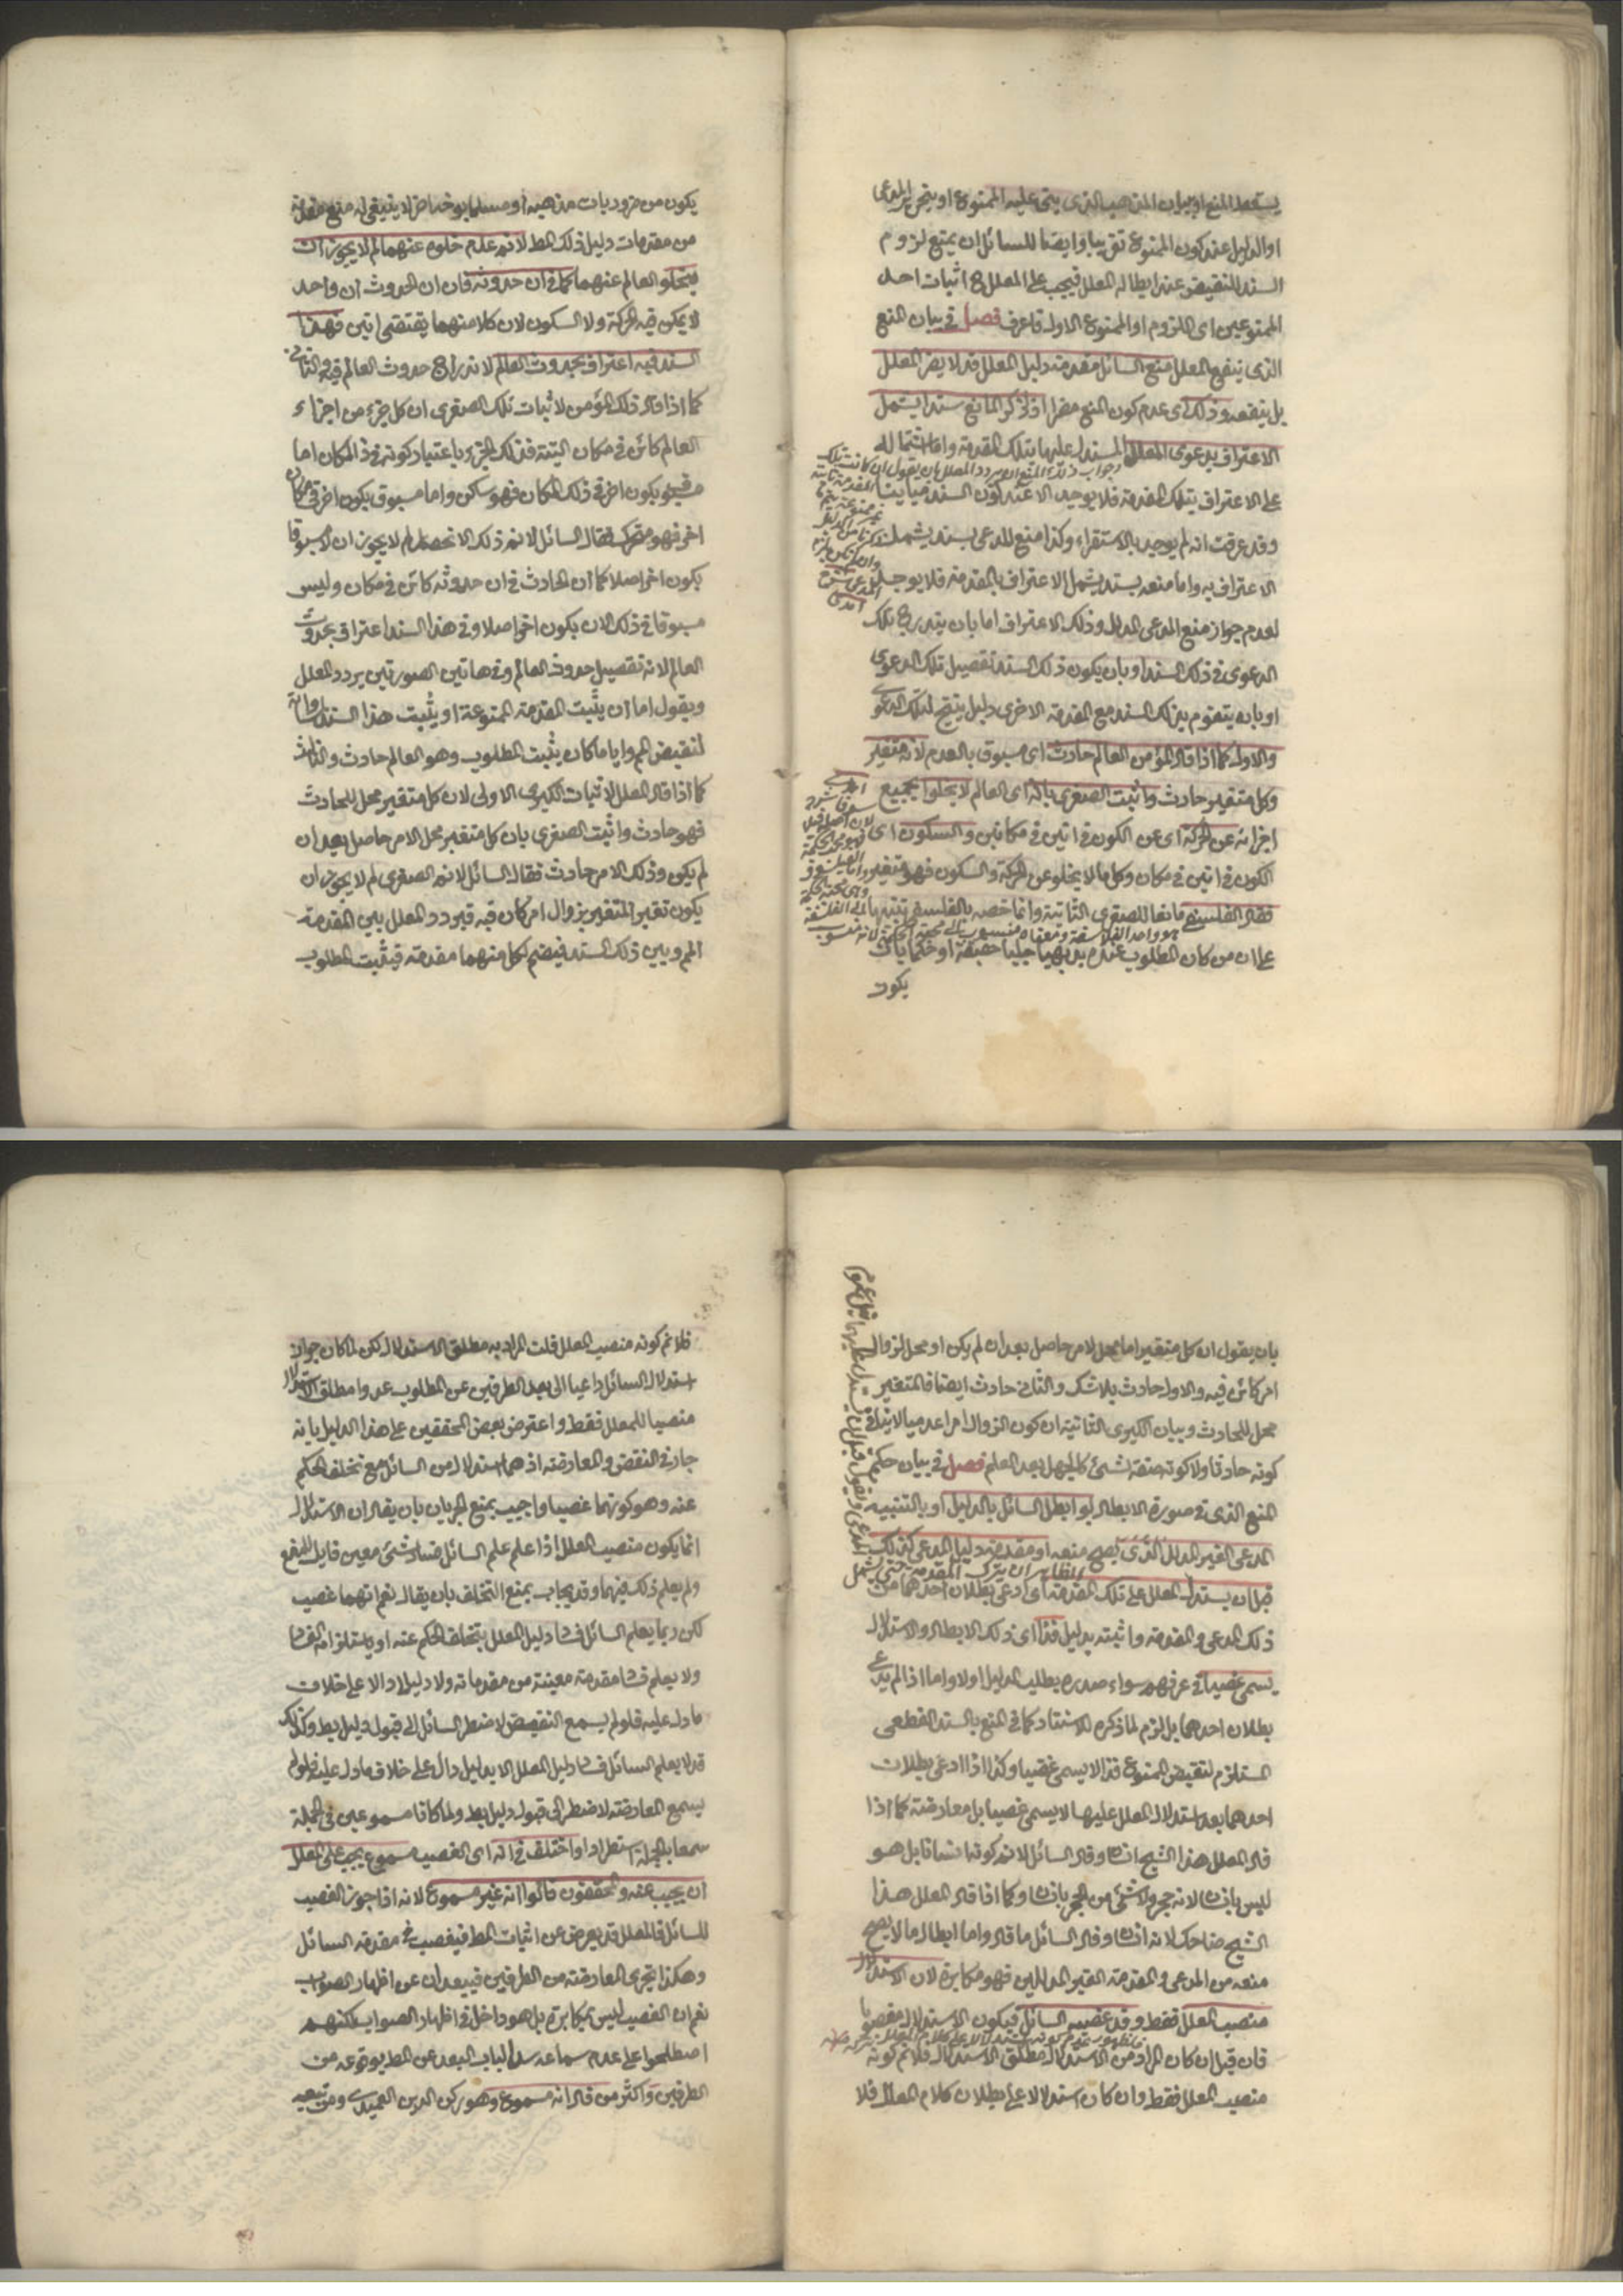 يسقط المنع او ببيان المذهب الذى يبتنى عليه الممنوع او بتحرير المدعى
او الدليل عند كون الممنوع تقريبا وايضا للسائل ان يمنع لزوم
السند للنقيض عند ابطاله المعلل فيجب على المعلل ح اثبات احد
الممنوعين اى اللزوم او الممنوع الاول فاعرف فصل فى بيان المنع
الذى ينفع المعلل منع السائل مقدمة دليل المعلل قد لا يضر المعلل
بل ينفعه وذلك اى عدم كون المنع مضرا اذ ذكر المانع سندا يشمل
الاعتراف بدعوى المعلل المستدل عليها بتلك المقدمة واما اشتماله
على الاعتراف بتلك المقدمة فلا يوجد الا عند كون السند مباينا
وقد عرفت انه لم يوجد بالاستقراء وكذا منع المدعى بسند يشمل
الاعتراف به واما منعه بسند يشمل الاعتراف بالمقدمة فلا يوجد
لعدم جواز منع المدعى المدلل وذلك الاعتراف اما بان يندرج تلك
الدعوى فى ذلك السند او بان يكون ذلك السند تفصيل تلك الدعوى
او بانه ينضم بذلك السند مع المقدمة الاخرى دليل ينتج لتلك الدعوى
والاول كما اذا قال المؤمن العالم حادث اى مسبوق بالعدم لانه متغير
وكل متغير حادث واثبت الصغرى بانه اى العالم لا يخلوا بجميع
اجزائه عن الحركة اى عن الكون فى انين فى مكانين والسكون اى
الكون فى انين فى مكان وكل ما لا يخلو عن الحركة والسكون فهو متغير
فقال الفلسفى مانعا للصغرى الثانية وانما خصه بالفلسفى تنبيها
على ان من كان المطلوب عنده بديهيا جليا حقيقة او حكما بان
يكون
يكون من ضروريات مذهبه او مسلما بوخذ اخر لا ينبغى له منع مقدمة
من مقدمات دليل ذلك المط لانم عدم خلوه عنهما لم لا يجوز ان
يخلو العالم عنهما كما فى ان حدوثه فان ان الحدوث ان واحد
لا يمكن فيه الحركة ولا السكون لان كلا منهما يقتضى انين فهذا
السند فيه اعتراف بحدوث العالم لاندراج حدوث العالم فيه والثانى
كما اذا قال ذلك المؤمن لاثبات تلك الصغرى ان كل جزء من اجزاء
العالم كائن فى مكان البتة فذلك الجزء باعتبار كونه فى ذا المكان اما
مسبوق بكون اخر فى ذلك المكان فهو ساكن واما مسبوق بكون اخر فى مكان
اخر فهو متحرك فقال السائل لانم ذلك الانحصار لم لا يجوز ان لا مسبوقا
بكون اخر اصلا كما ان الحادث فى ان حدوثه كائن فى مكان وليس
مسبوقا فى ذلك الان بكون اخر اصلا وفى هذا السند اعتراف بحدوث
العالم لانه تفصيل حدوث العالم وفى هاتين الصورتين يردد المعلل
ويقول اما ان يثبت المقدمة الممنوعة او يثبت هذا السند المساوى
لنقيض المم واياما كان يثبت المطلوب وهو العالم حادث والثالث
كما اذا قال المعلل لاثبات الكبرى الاولى لان كل متغير محل للحادث
فهو حادث واثبت الصغرى بان كل متغير محل لامر حاصل بعد ان
لم يكن وذلك الامر حادث فقال السائل لانم الصغرى لم لا يجوز ان
يكون تغير المتغير بزوال امر كان فيه فيردد المعلل بين المقدمة
المم وبين ذلك السند فيضم لكل منهما مقدمة فيثبت المطلوب
بان يقول ان كل متغير اما محل لامر حاصل بعد ان لم يكن او محل لزوال
امر كائن فيه والاول حادث بلا شك والثانى حادث ايضا فالمتغير
محل للحادث وبيان الكبرى الثانية ان كون الزوال امرا عدميا لا ينافى
كونه حادثا ولا كونه صفة لشئ كالجهل بعد العلم فصل فى بيان حكم
المنع الذى فى صورة الابطال لو ابطل السائل بالدليل او بالتنبيه
المدعى الغير المدلل الذى يصح منعه او مقدمة دليل المدعى كذلك
قبل ان يستدل المعلل على تلك المقدمة اى ادعى بطلان احدهما من
ذلك المدعى والمقدمة واثبته بدليل فذا اى ذلك الابطال والاستدلال
يسمى غصبا فى عرفهم سواء صدره بطلب الدليل اولا واما اذا لم يدع
بطلان احدهما بل لزم لما ذكره للاستناد كما فى المنع بالسند القطعى
المستلزم لنقيض الممنوع فذا لا يسمى غصبا وكذا اذا ادعى بطلان
احدهما بعد استدلال المعلل عليها لا يسمى غصبا بل معارضة كما اذا
قال المعلل هذا الشبح انسان وقال السائل لانم كونه انسانا بل هو
ليس بانسان لانه حجر ولا شئ من الحجر بانسان وكما اذا قال المعلل هذا
الشبح ضاحك لانه انسان وقال السائل ما قال واما ابطال ما لا يصح
منعه من المدعى والمقدمة الغير المدللين فهو مكابرة لان الاستدلال
منصب المعلل فقط وقد غصبه السائل فيكون الاستدلال مغصوبا
فان قيل ان كان المراد من الاستدلال مطلق الاستدلال فلانم كونه
منصب المعلل فقط وان كان استدلالا على بطلان كلام المعلل فلا
فلانم كونه منصب المعلل قلت المراد به مطلق الاستدلال لكن لما كان جواز
استدلال السائل داعيا الى بعد الطرفين عن المطلوب عدوا مطلق الاستدلال
منصبا للمعلل فقط واعترض بعض المحققين على هذا الدليل بانه
جار فى النقض والمعارضة اذ هما استدلال من السائل مع تخلف الحكم
عنه وهو كونهما غصبا واجيب بمنع الجريان بان يقال ان الاستدلال
انما يكون منصب المعلل اذا علم علم السائل فساد شئ معين قابل للمنع
ولم يعلم ذلك فيهما وقد يجاب بمنع التخلف بان يقال نعم انهما غصب
لكن ربما يعلم السائل فساد دليل المعلل بتخلف الحكم عنه او باستلزامه الفساد
ولا يعلم فساد مقدمة معينة من مقدماته ولا دليلا دالا على خلاف
ما دل عليه فلو لم يسمع النقض لاضطر السائل الى قبول دليل بط وكذلك
قد لا يعلم السائل فساد دليل المعلل الا بدليل دال على خلاف ما دل عليه فلو لم
يسمع المعارضة لاضطر الى قبول دليل بط ولما كانا مسموعين فى الجملة
سمعا بالجملة استطرادا واختلف فى انه اى الغصب مسموع يجب على المعلل
ان يجيب عنه والمحققون قالوا انه غير مسموع لانه اذا جوز الغصب
للسائل فالمعلل قد يعرض عن اثبات المط فيغصب فى مقدمة السائل
وهكذا تجرى المعارضة من الطرفين فيبعدان عن اظهار الصواب
نعم ان الغصب ليس بمكابرة بل هو داخل فى اظهار الصواب لكنهم
اصطلحوا على عدم سماعه سدا لباب البعد عن المط بوقوعه من
الطرفين واكثر من قال انه مسموع وهو ركن الدين العميدى ومن تبعه